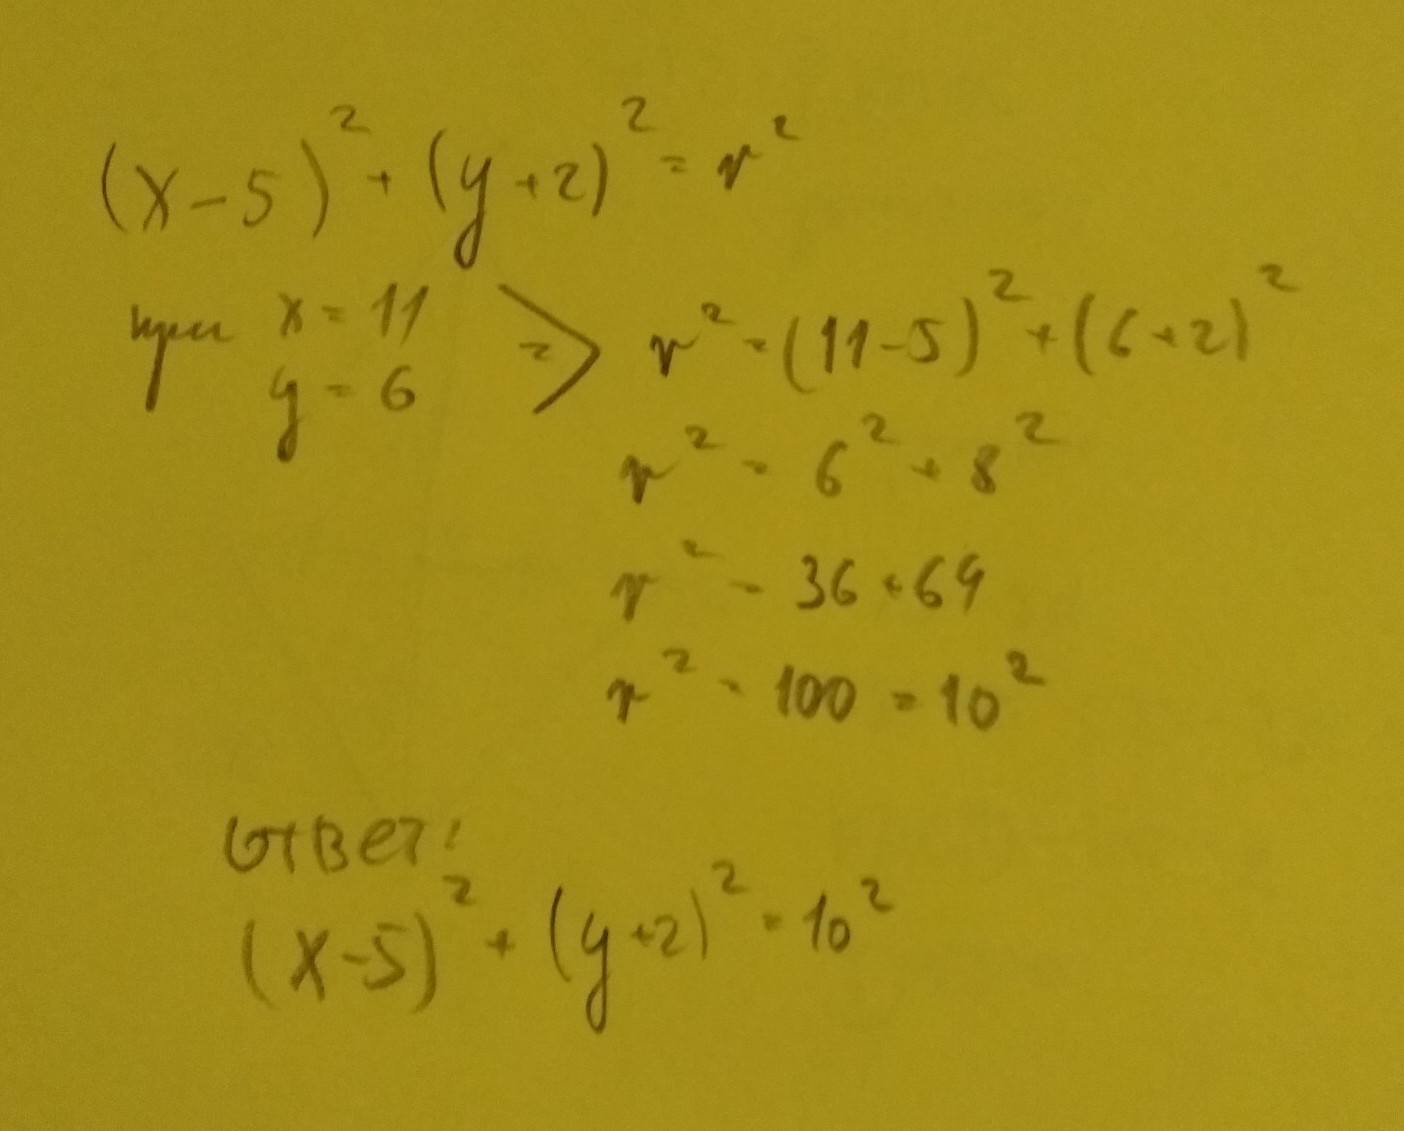 (x-5)² + (y+2)² = r²
при x = 11 => r² = (11-5)² + (6+2)²
y = 6
r² = 6² + 8²
r² = 36 + 64
r² = 100 = 10²
Ответ:
(x-5)² + (y+2)² = 10²